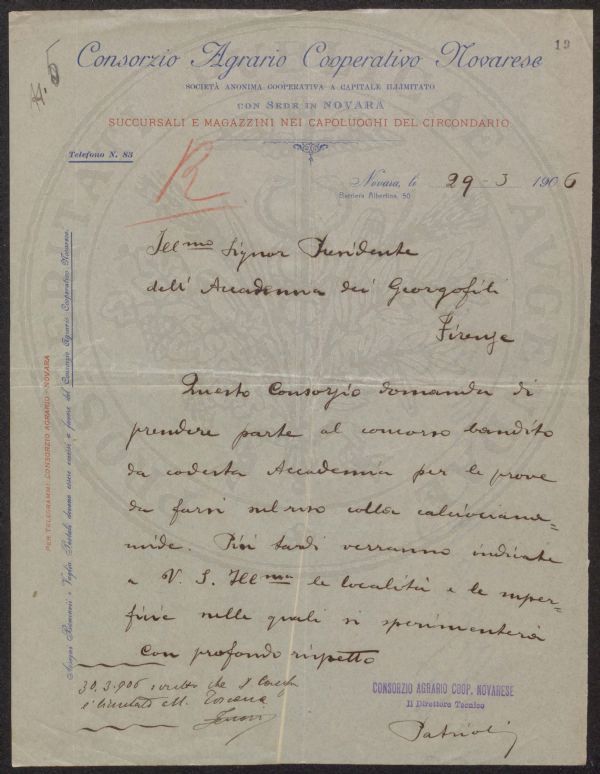 19
Consorzio Agrario Cooperativo Novarese
SOCIETÀ ANONIMA COOPERATIVA A CAPITALE ILLIMITATO
CON SEDE IN NOVARA
SUCCURSALI E MAGAZZINI NEI CAPOLUOGHI DEL CIRCONDARIO
Telefono N. 83
R
Novara, le 29 - 3 1906
Barriera Albertina, 50
Illmo Signor Presidente
dell' Accademia dei Georgofili
Firenze
Questo Consorzio domanda di
prendere parte al concorso bandito
da codesta Accademia per le prove
da farsi sul riso colla calciociana-
mide. Più tardi verranno indicate
a V. S. Illma le località e le super-
ficie nelle quali si sperimenterà
Con profondo rispetto
30.3.906 scritto che il
è limitato alla Toscana
CONSORZIO AGRARIO COOP. NOVARESE
Il Direttore Tecnico
Patrioli
PER TELEGRAMMI: CONSORZIO AGRARIO - NOVARA
Assegni Bancari e Vaglia Postali devono essere emessi a favore del Consorzio Agrario Cooperativo Novarese.